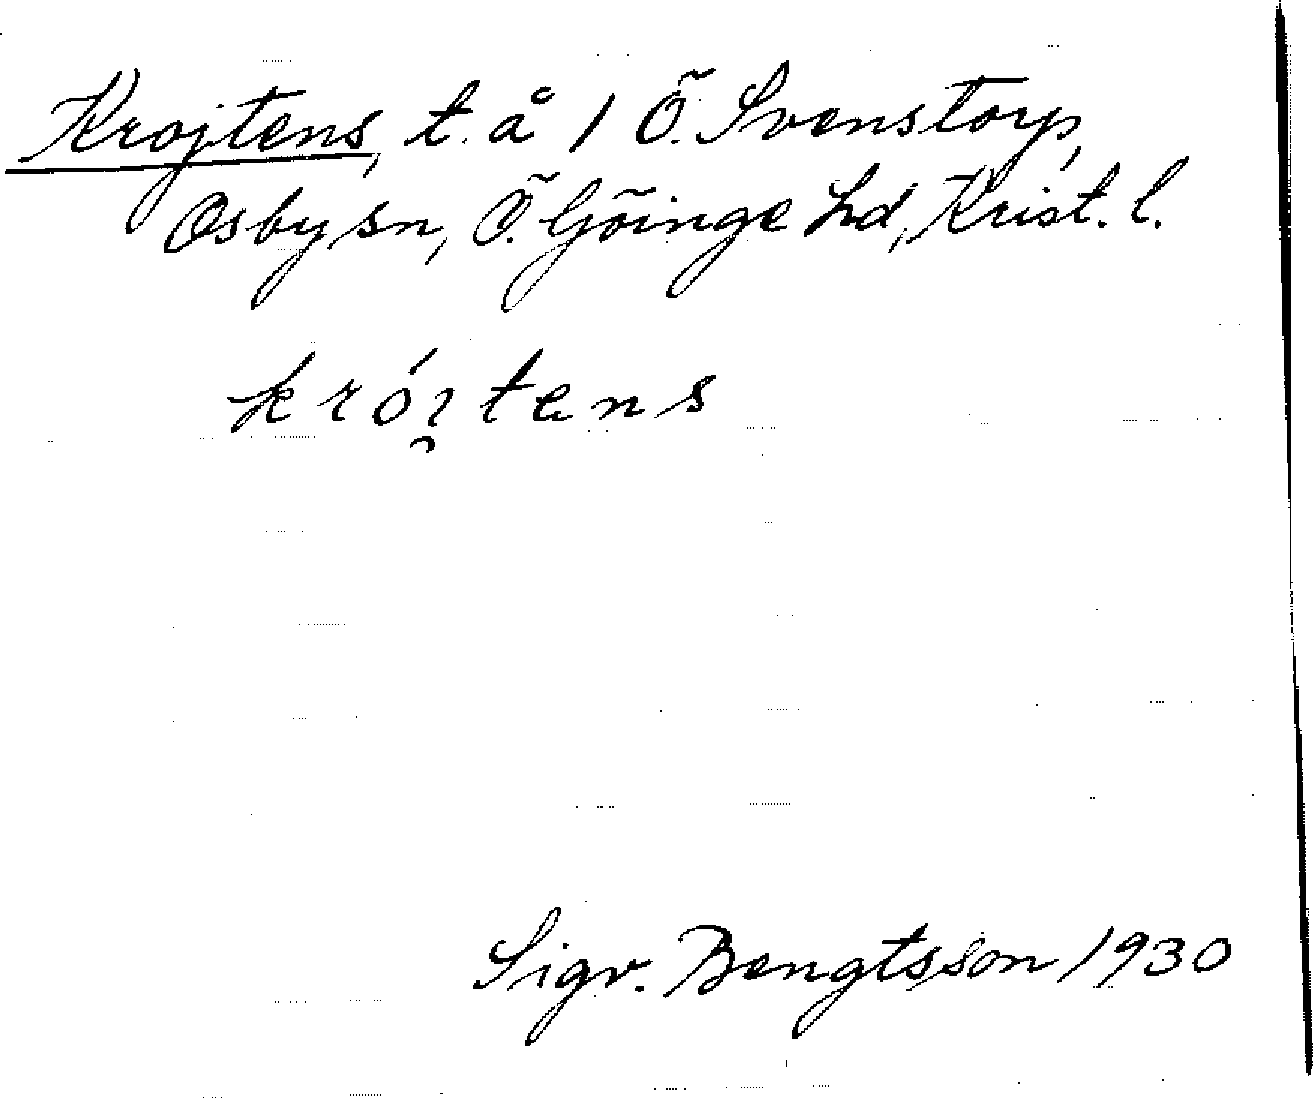 Krojtens, t. å 1 Ö. Svenstorp,
Osby sn, Ö. Göinge hd, Krist. l.
króı̯tens
Sigv. Bengtsson 1930